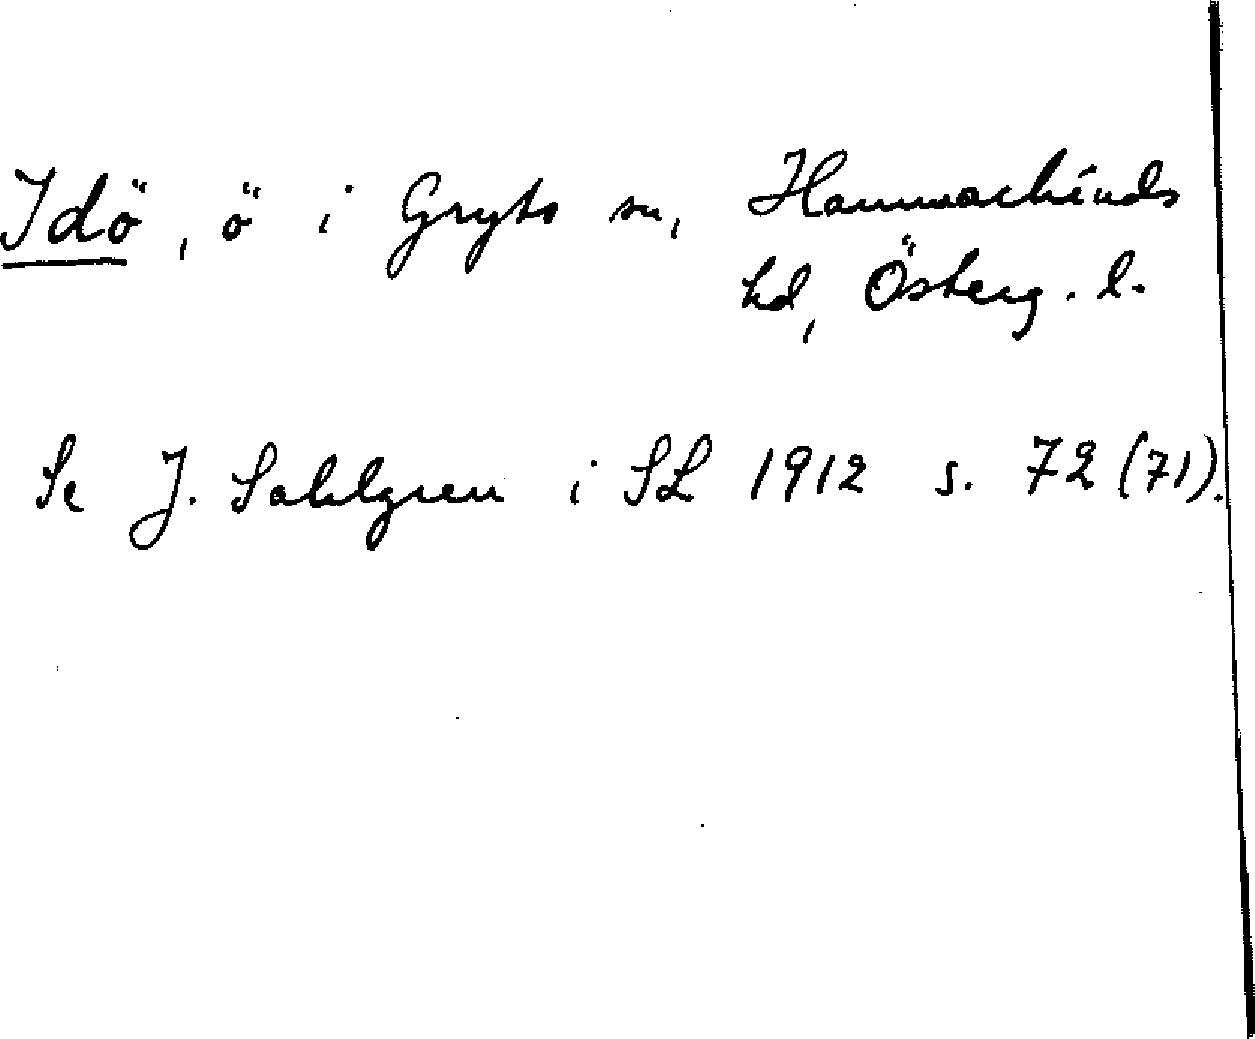 Idö, ö i Gryts sn, Hammarkinds
hd, Österg. l.
Se J. Sahlgren i SL 1912 s. 72 (71).